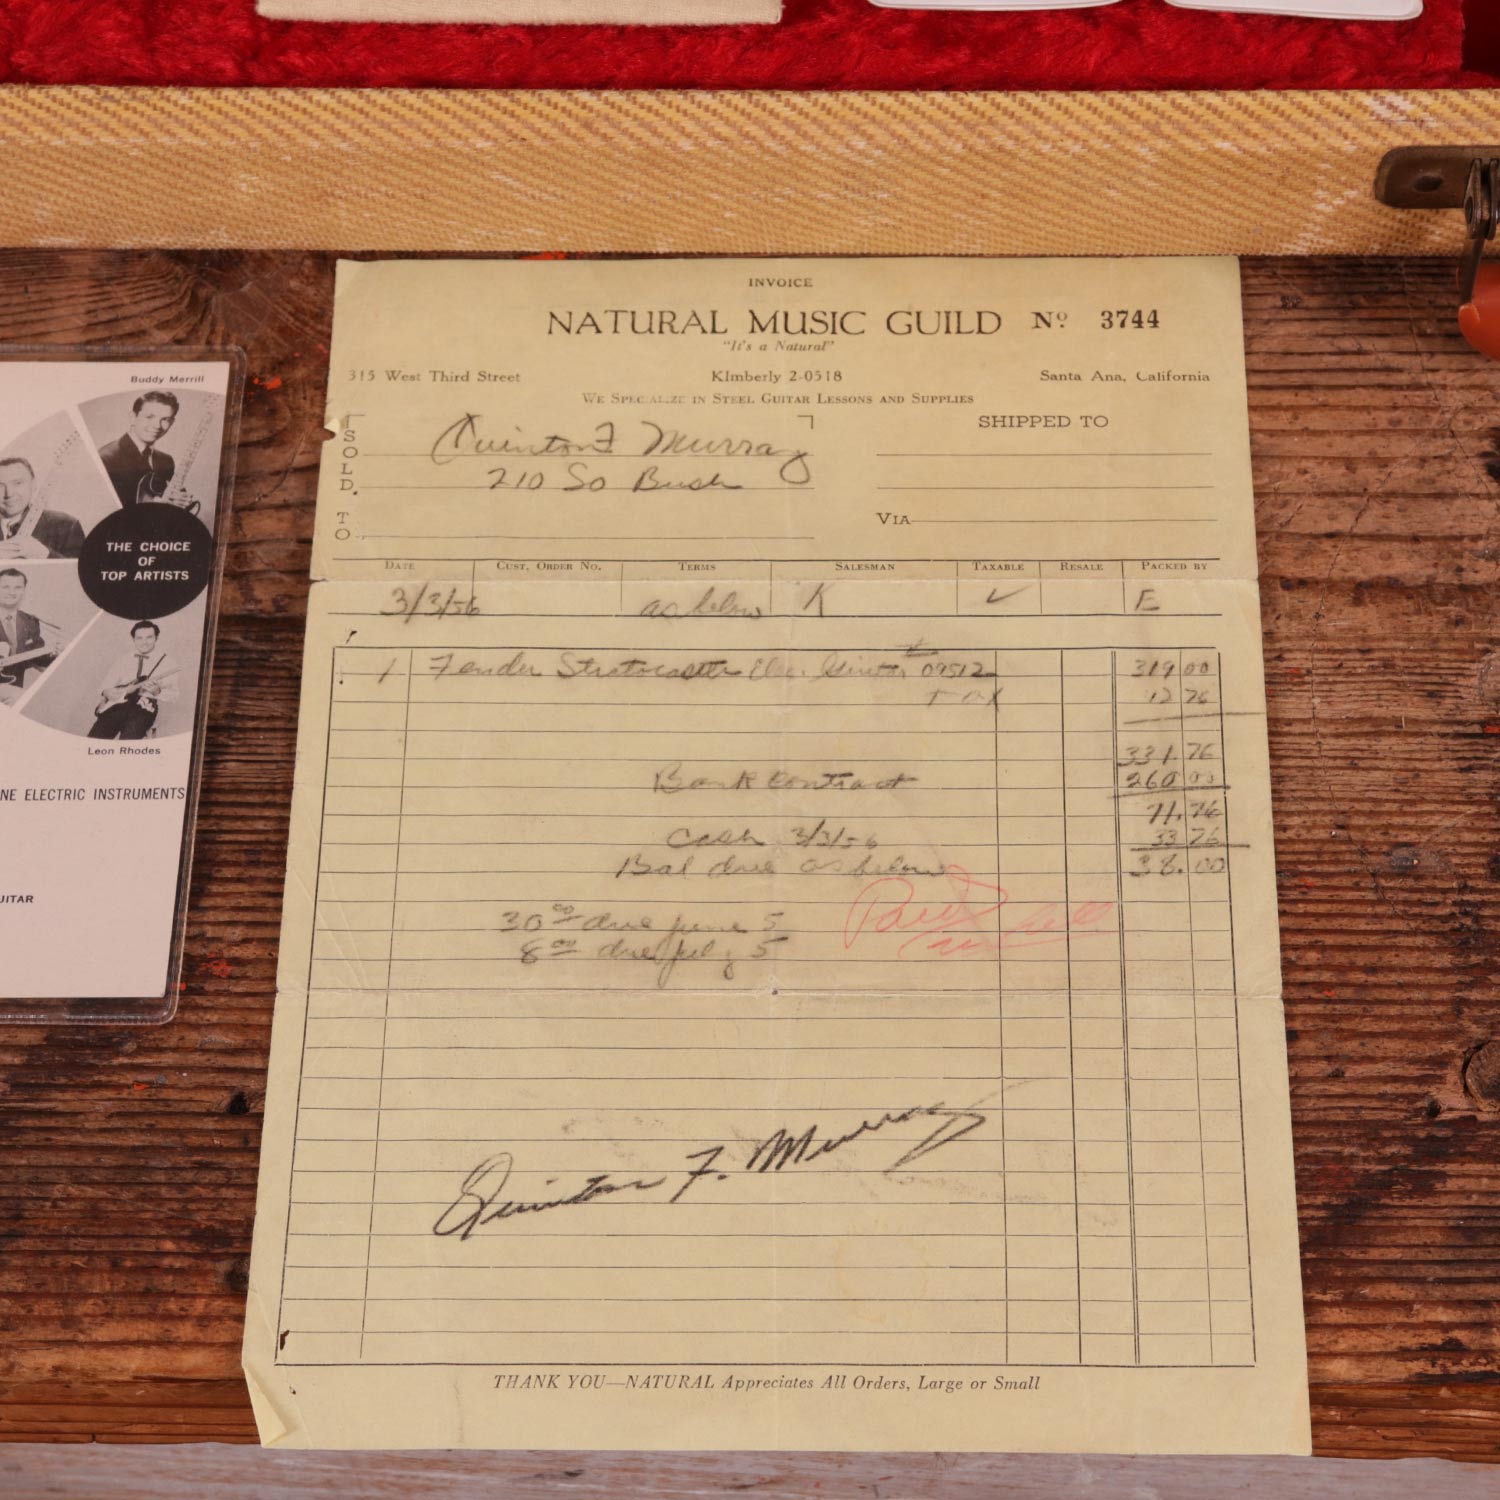 INVOICE
NATURAL MUSIC GUILD Nº 3744
"It's a Natural"
315 West Third Street KImberly 2-0518 Santa Ana, California
We Specialize in Steel Guitar Lessons and Supplies
SOLD TO
Quinton F Murray
210 So Bush
SHIPPED TO
Via
Date Cust. Order No. Terms Salesman Taxable Resale Packed by
3/3/56 as below K ✓ E
1 Fender Stratocaster Elec. Guitar # 09512 319 00
Tax 12 76
331.76
Bank Contract 260 00
71.76
Cash 3/3/56 33 76
Bal due as below 38.00
30 00 due June 5
8 00 due July 5
Paid
Quinton F. Murray
THANK YOU—NATURAL Appreciates All Orders, Large or Small
Buddy Merrill
THE CHOICE
OF
TOP ARTISTS
Leon Rhodes
NE ELECTRIC INSTRUMENTS
UITAR